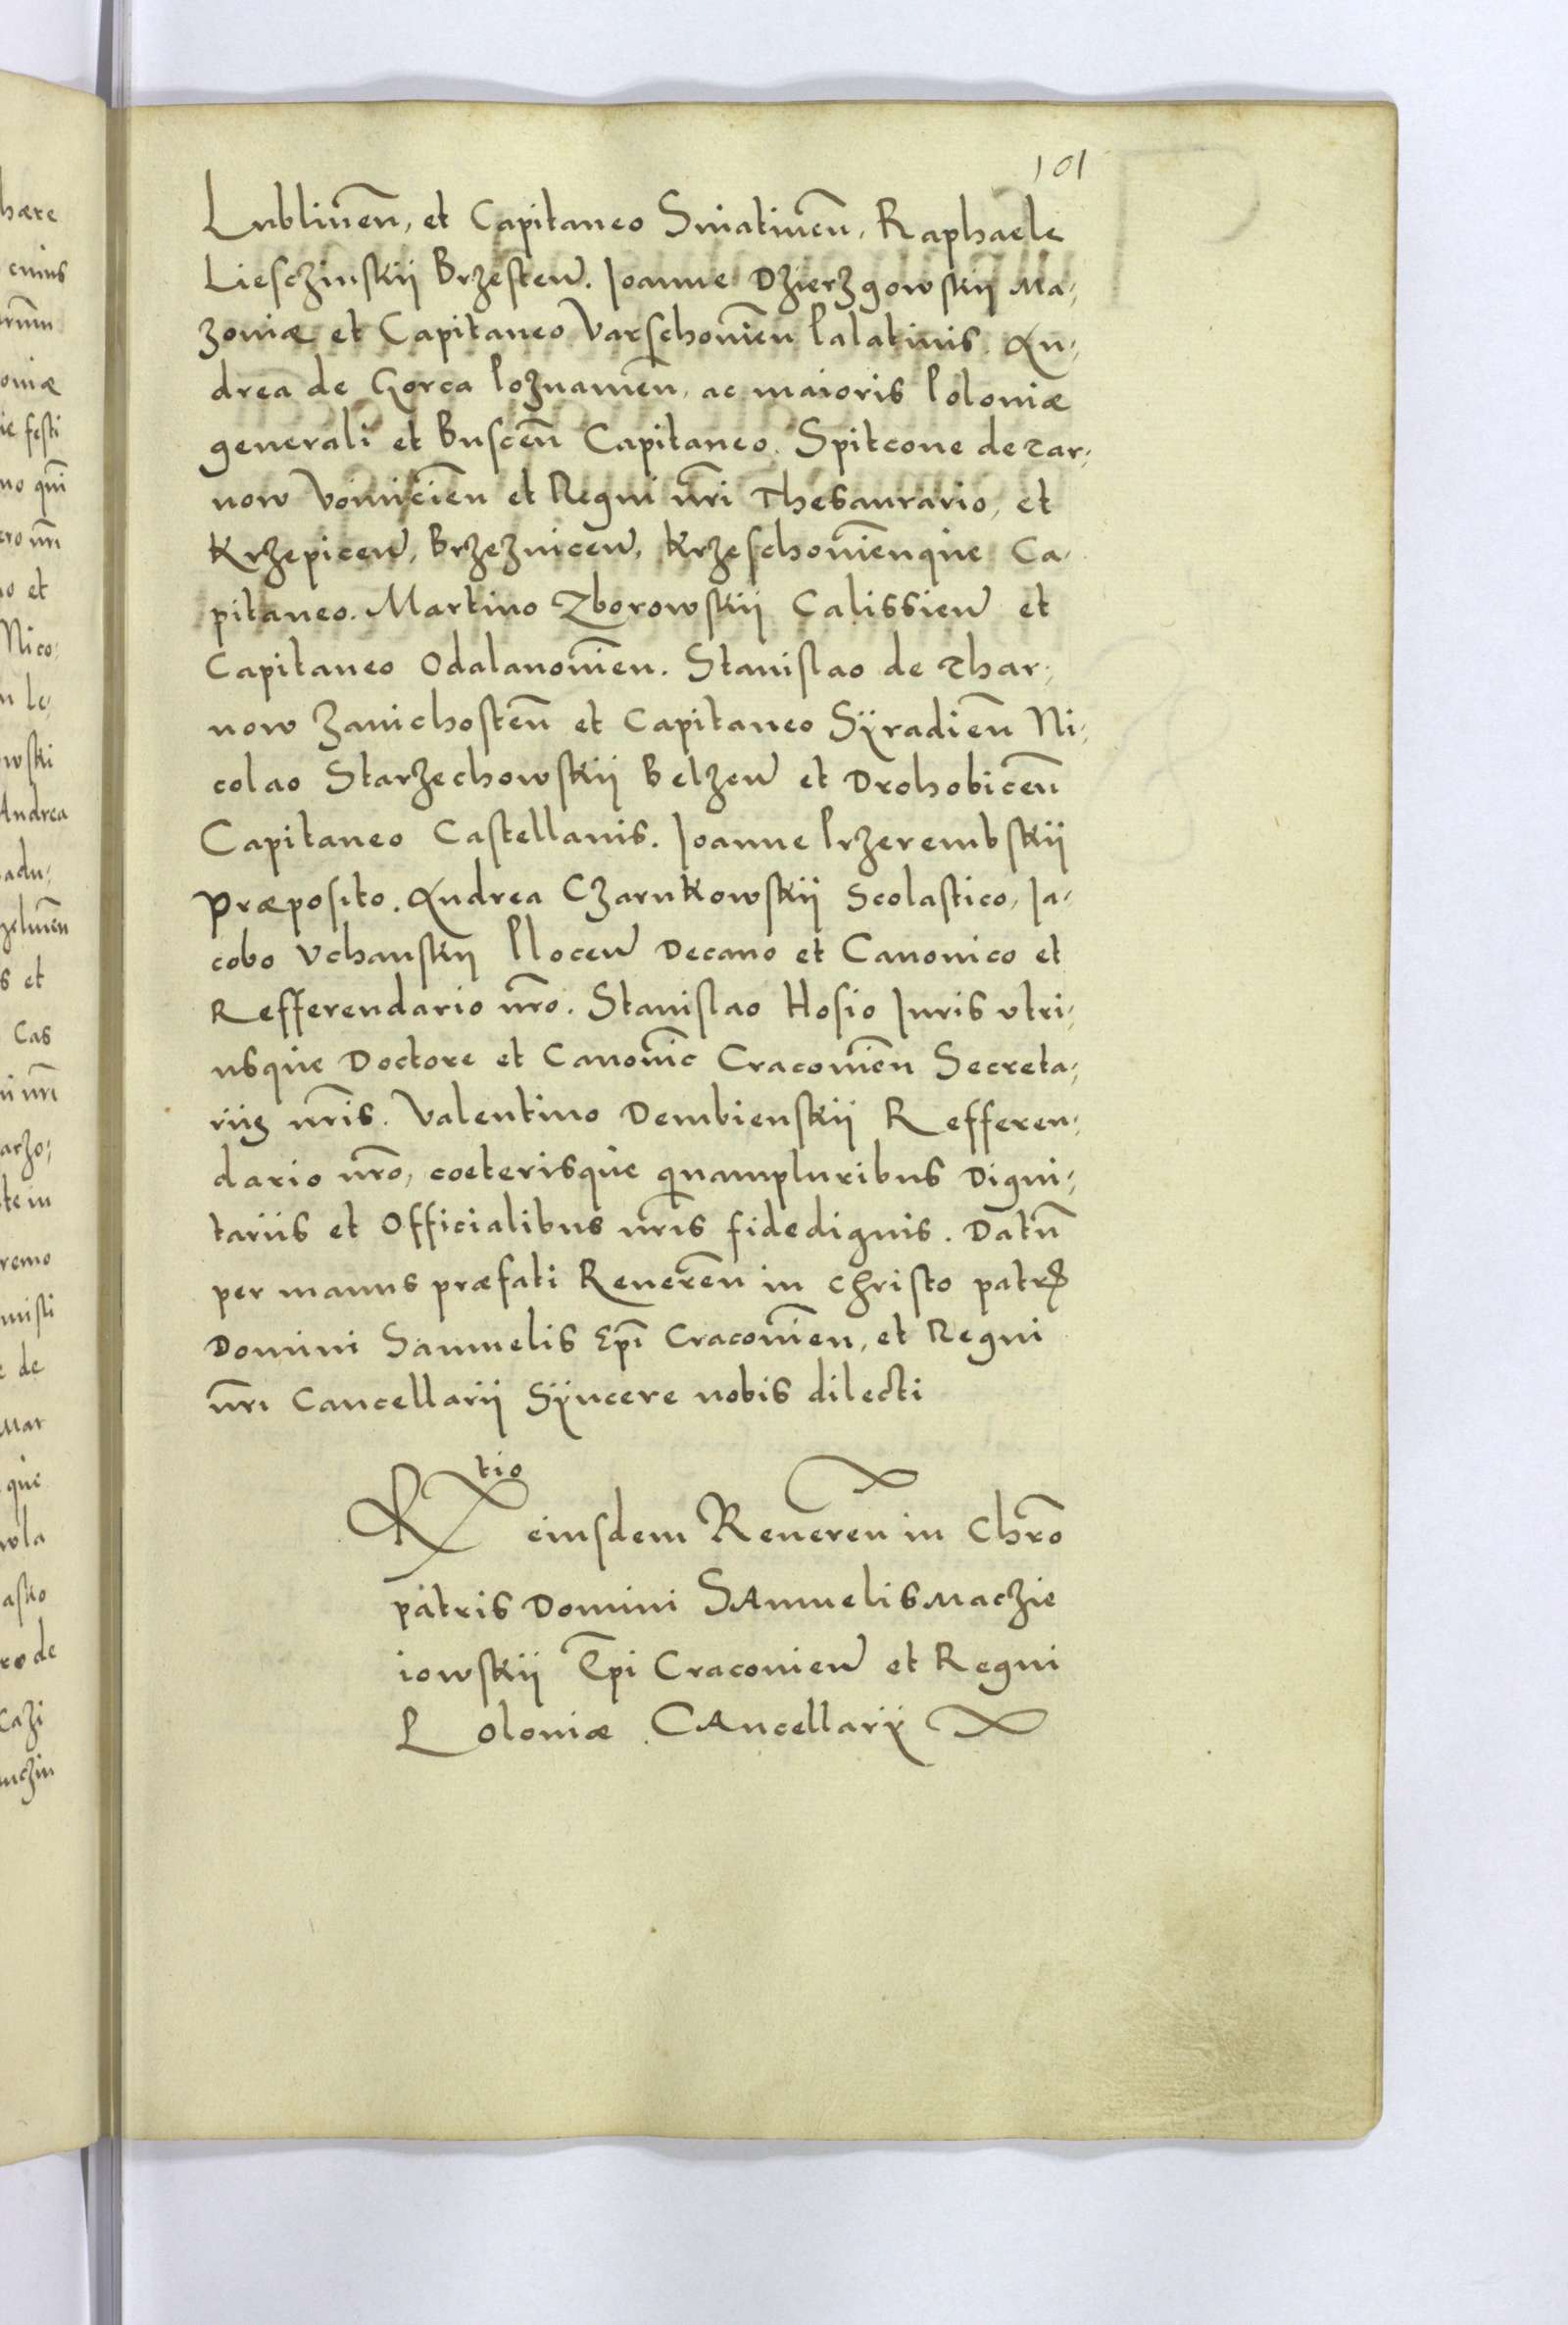 101
Lublineñ, et Capitaneo Sniatineñ, Raphaele
Liesczinskij Brzesten. Joanne Dzierzgowskij Ma,
zoniæ et Capitaneo Varschonieñ Palatinis. An,
drea de Gorca Poznanieñ, ac maioris Poloniæ
generali et Busceñ Capitaneo. Spitcone de Tar,
now Voiniciẽn et Regni nr̃i Thesaurario, et
Krzepicen, Brzeznicen, Krzeschoniẽnque Ca,
pitaneo. Martino Zborowskij Calissien et
Capitaneo Odalanoniẽn. Stanislao de Thar,
now Zanichosteñ et Capitaneo Sÿradieñ Ni,
colao Starzechowskij Belzen et Drohobiceñ
Capitaneo Castellanis. Joanne Przerembskij
Præposito. Andrea Czarnkowskij Scolastico, Ja,
cobo Vchanskij Plocen Decano et Canonico et
Refferendario nr̃o. Stanislao Hosio Juris vtri,
usque Doctore et Canonic̃ Cracouieñ Secreta,
rijs nr̃is. Valentino Dembienskij Refferen,
dario nr̃o, coeterisque quampluribus Digni,
tarijs et Officialibus nr̃is fidedignis. Datũ
per manus præfati Reuereñ in Christo patr̃
Domini Samuelis Ep̃i Cracouieñ, et Regni
nr̃i Cancellarij Sÿncere nobis dilecti
Rtio
eiusdem Reueren in Chr̃o
patris Domini SAmuelis Maczie
iowskij Ep̃i Cracouien et Regni
Poloniæ CAncellarij
hære
cuius
orum
oniæ
ie festi
no qui
ero nr̃i
io et
Nico,
n le,
owski
Andrea
adu,
zelmeñ
s et
Cas
ni nr̃i
arzo,
te in
remo
misti
e de
Mar
que
wla
asko
ro de
Cazi
nczin